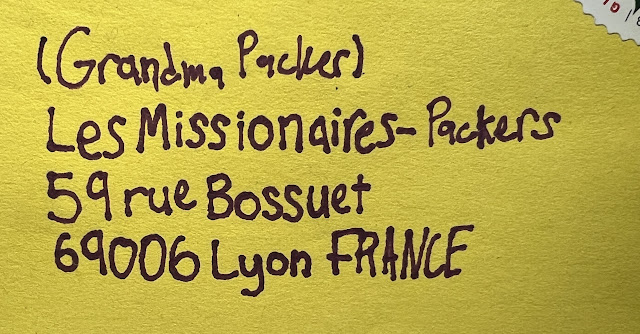 (Grandma Packer)
Les Missionaires-Packers
59 rue Bossuet
69006 Lyon FRANCE